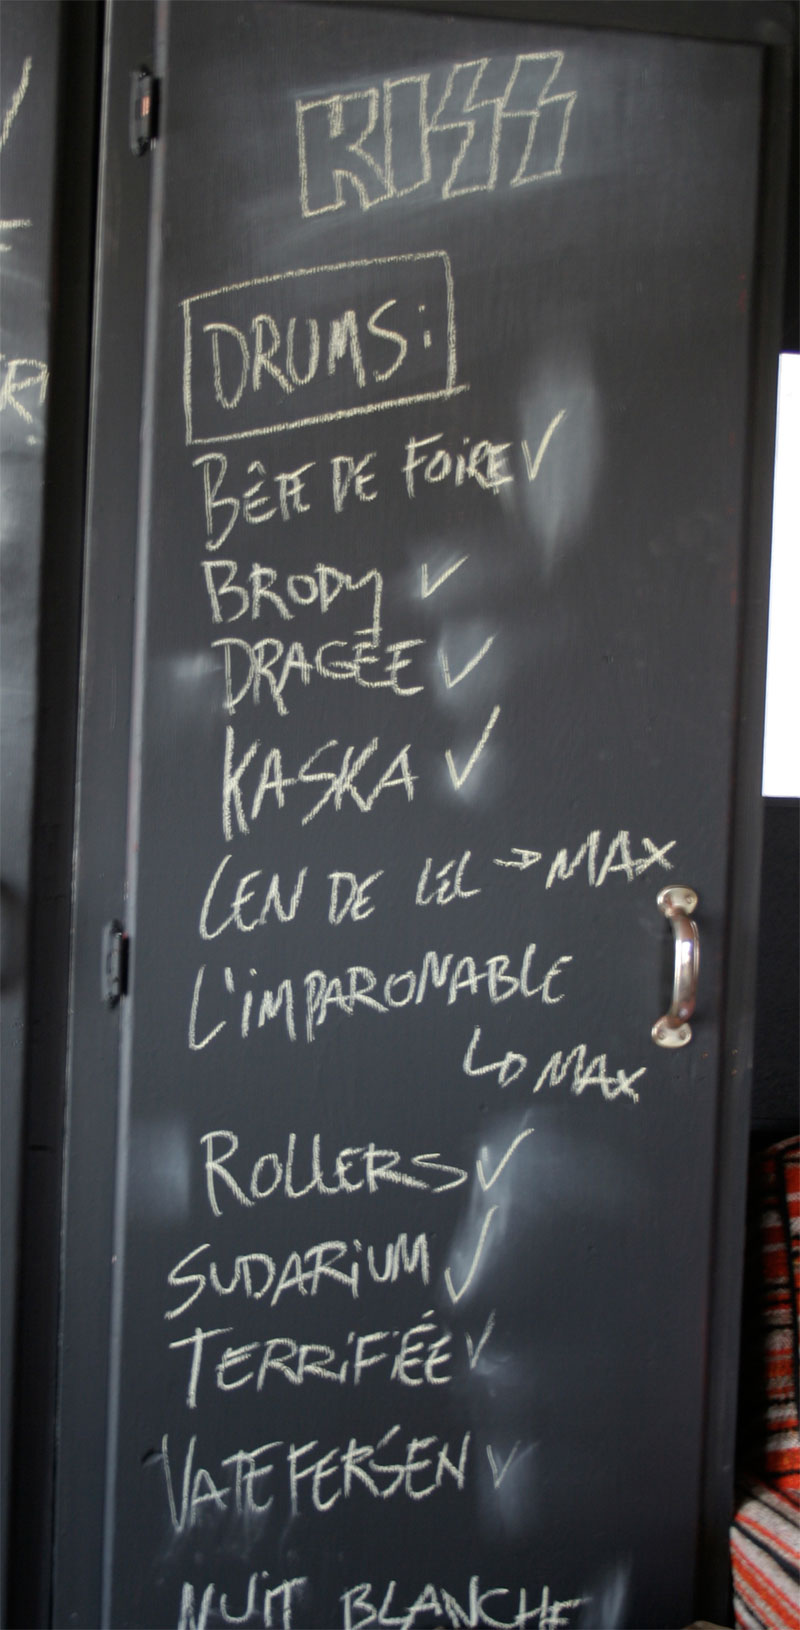 KISS
DRUMS:
BÊTE DE FOIRE ✓
BRODY ✓
DRAGÉE ✓
KASKA ✓
LEN DE LEL → MAX
L'IMPARONABLE
↳ MAX
ROLLERS ✓
SUDARIUM ✓
TERRIFIÉE ✓
VATE FERSEN ✓
NUIT BLANCHE